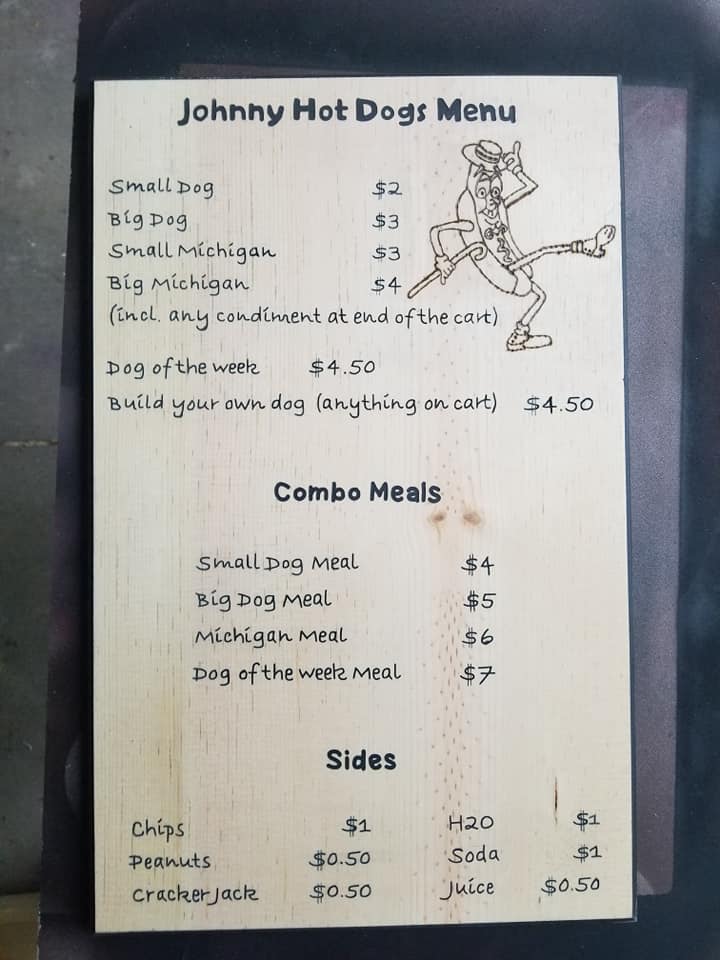 Johnny Hot Dogs Menu
Small Dog $2
Big Dog $3
Small Michigan $3
Big Michigan $4
(incl. any condiment at end of the cart)
Dog of the week $4.50
Build your own dog (anything on cart) $4.50
Combo Meals
Small Dog Meal $4
Big Dog Meal $5
Michigan Meal $6
Dog of the week Meal $7
Sides
Chips $1 H2O $1
Peanuts $0.50 Soda $1
Cracker Jack $0.50 Juice $0.50